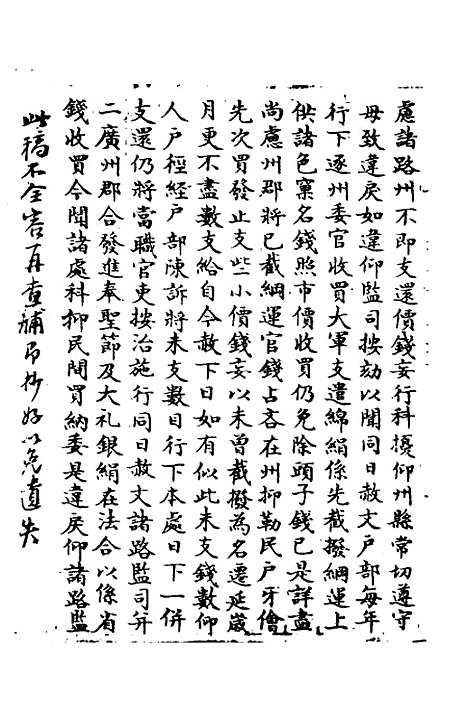 慮諸路州不即支還價錢妄行科擾仰州縣常切遵守
毋致違戾如違仰監司按劾以聞同日赦文戶部每年
行下逐州委官收買大軍支遣綿絹係先截撥綱運上
供諸色窠名錢照市價收買仍免除頭子錢已是詳盡
尚慮州郡將已截綱運官錢占吝在州抑勒民戶牙儈
先次買發止支些小價錢妄以未曾截撥為名遷延歲
月更不盡數支給自今赦下日如有似此未支錢數仰
人戶徑經戶部陳訴將未支數目行下本處日下一併
支還仍將當職官吏按治施行同日赦文諸路監司并
二廣州郡合發進奉聖節及大禮銀絹在法合以係省
錢收買今聞諸處科抑民間買納委是違戾仰諸路監
此稿不全害再查補帋抄好以免遺失